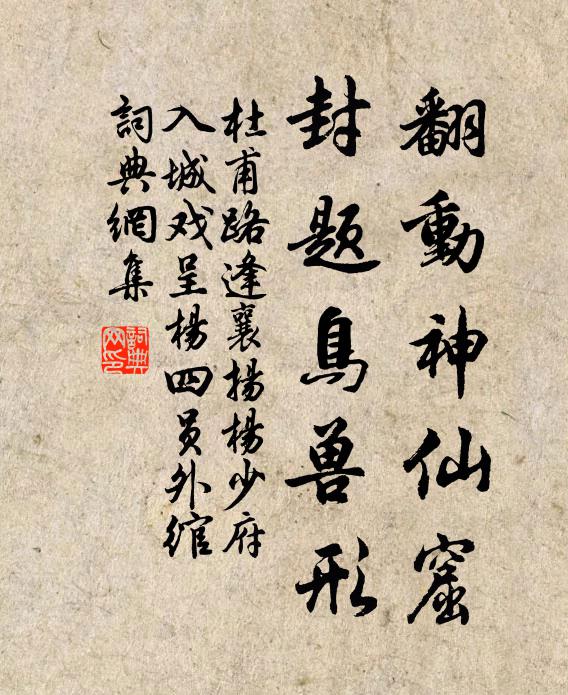 翻動神仙窟
封题鳥兽形
杜甫路逢襄揚楊少府
入城戏呈楊四员外綰
詞典網集
詞典網印